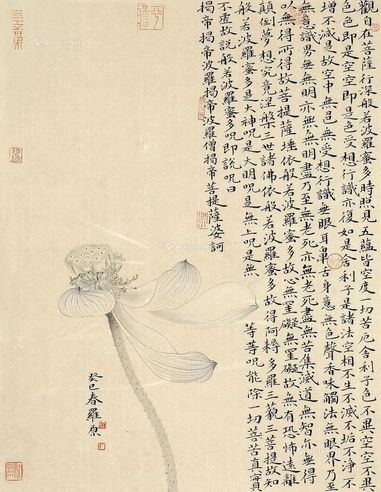 觀自在菩薩行深般若波羅蜜多時照見五蘊皆空度一切苦厄舍利子色不異空空不異
色色即是空空即是色受想行識亦復如是舍利子是諸法空相不生不滅不垢不淨不
增不減是故空中無色無受想行識無眼耳鼻舌身意無色聲香味觸法無眼界乃至
無意識界無無明亦無無明盡乃至無老死亦無老死盡無苦集滅道無智亦無得
以無所得故菩提薩埵依般若波羅蜜多故心無罣礙無罣礙故無有恐怖遠離
顛倒夢想究竟涅槃三世諸佛依般若波羅蜜多故得阿耨多羅三藐三菩提故知
般若波羅蜜多是大神呪是大明呪是無上呪是無 等等呪能除一切苦真實
不虛故說般若波羅蜜多呪即說呪曰
揭帝揭帝波羅揭帝波羅僧揭帝菩提薩婆訶
癸巳春羅原